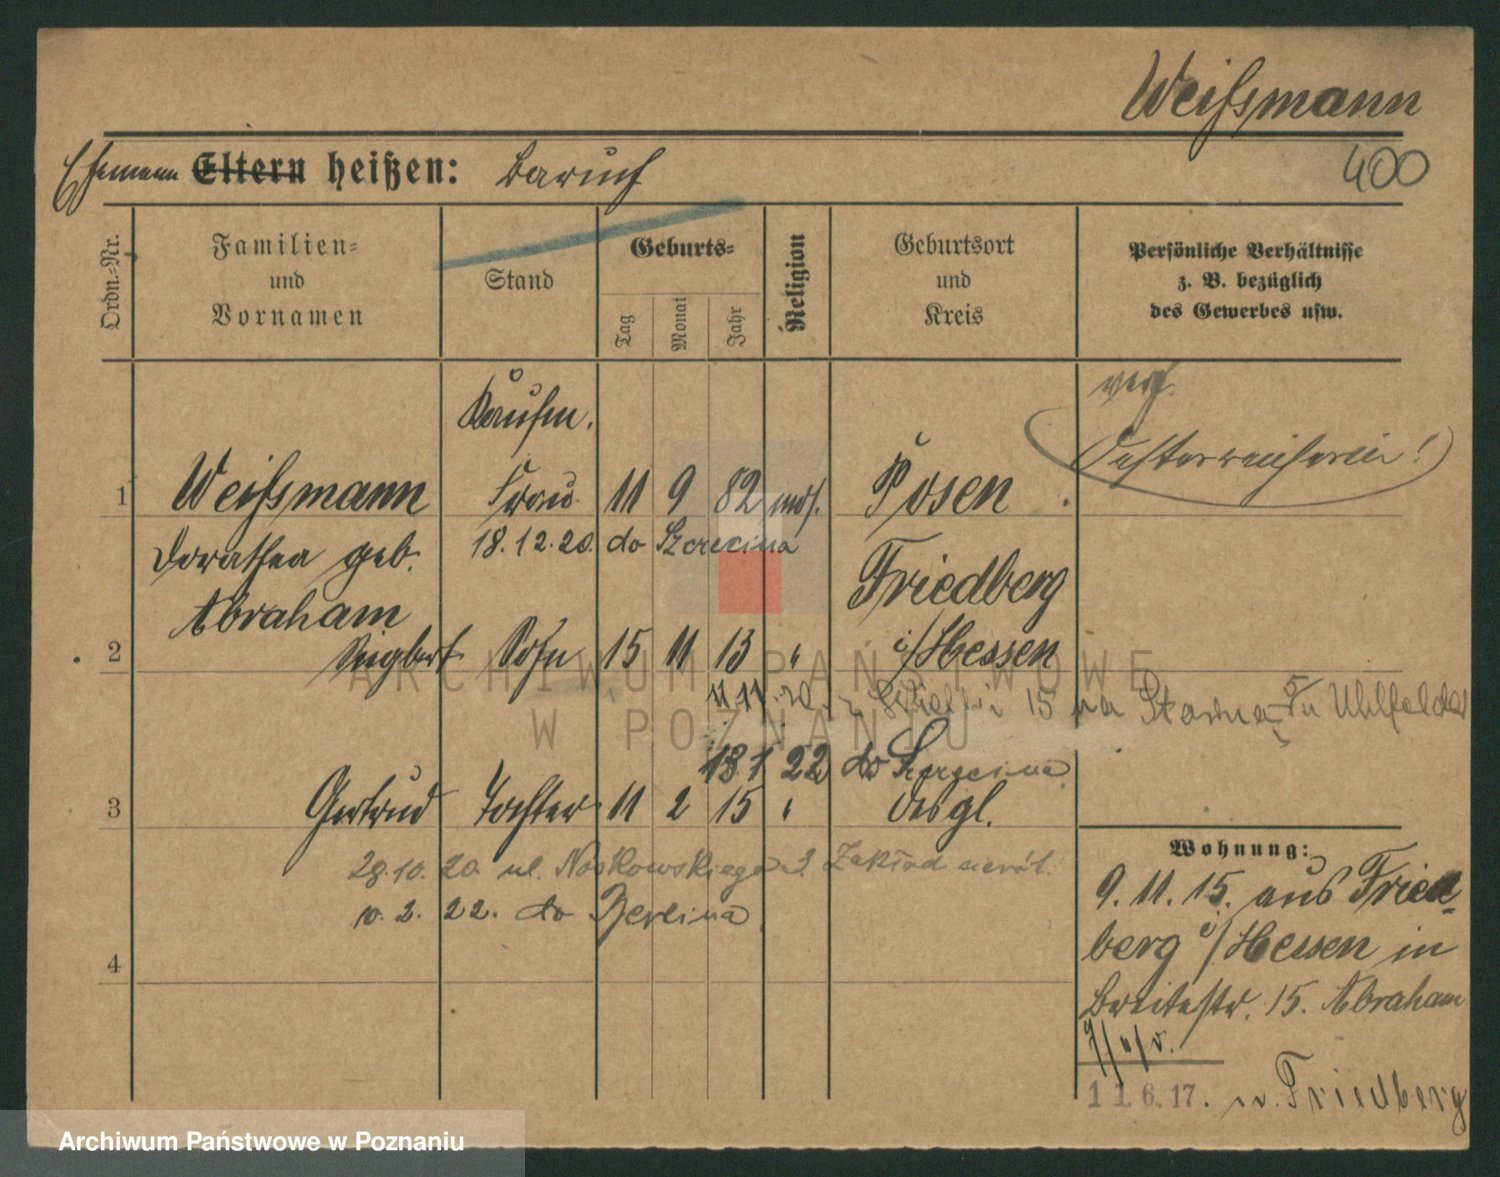 Weißmann
400
Ehemann Eltern heißen: Baruch
Ordn.=Nr.
Familien=
und
Vornamen
Stand
Geburts=
Tag
Monat
Jahr
Religion
Geburtsort
und
Kreis
Persönliche Verhältnisse
z. B. bezüglich
des Gewerbes usw.
verh.
Kaufm.
(Oesterreicherin!)
1 Weißmann Frau 11 9 82 mos. Posen
Dorothea geb. 18.12.20. do Szczecina
Abraham
Friedberg
2 Siegbert Sohn 15 11 13 " i/Hessen
11.11.20. z 15 na
18.1 22 do Szczecina
3 Gertrud Tochter 11 2 15 " desgl.
28.10. 20. ul. Noskowskiego 3. Zakład sierót.
10. 2. 22. do Berlina
4
Wohnung:
9.11.15. aus Fried=
berg i/Hessen in
Breitestr. 15. Abraham
11 6. 17. n. Friedberg
ARCHIWUM PAŃSTWOWE
W POZNANIU
Archiwum Państwowe w Poznaniu